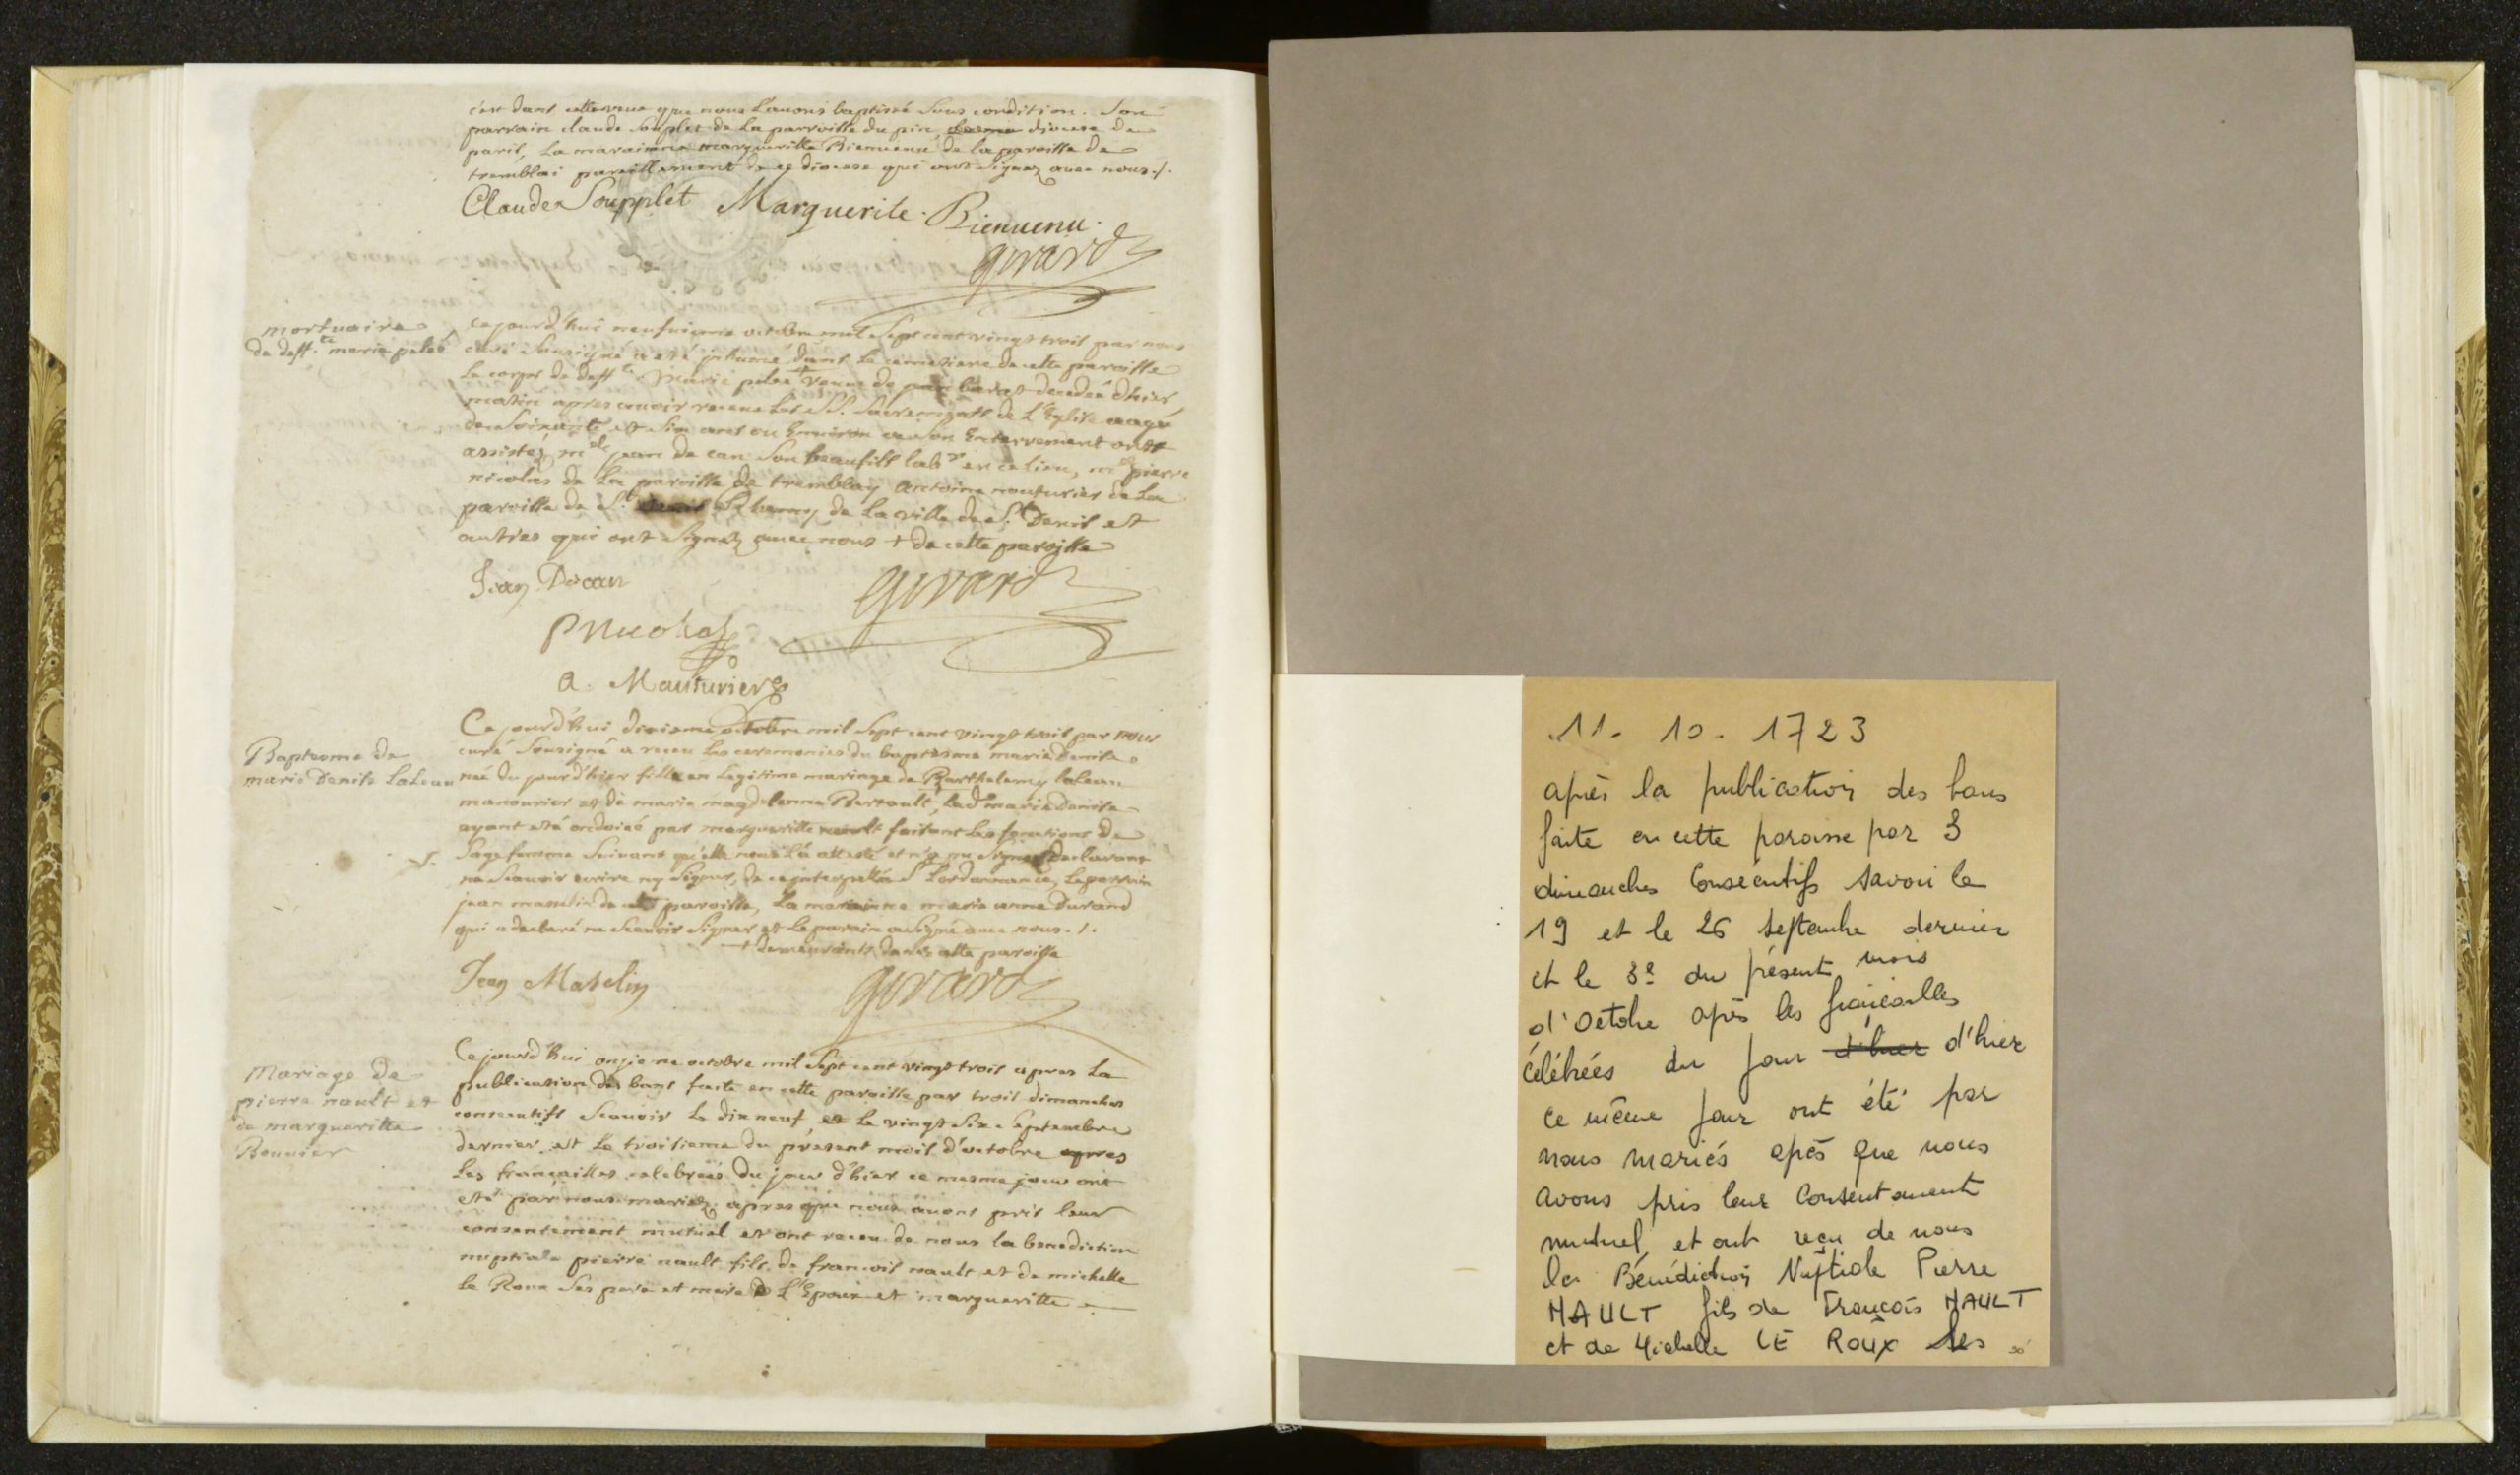 c'est dans cette veue que nous l'avons baptisé sous condition. Son
parrain claude souplet de la parroisse du pin, diocese de
paris, La maraine margueritte Bienvenu de la paroisse de
tremblai pareillement de ce diocese qui ont signez avec nous ./.
Claude Soupplet Marguerite Bienuenu
girard
mortuaire
de deff.te marie pelée
Cejourd'hui neufvieme octobre mil sept cent vingt trois par nous
curé sousigné a esté inhumé dans le cemetiere de cette paroisse
Le corps de deff.te Marie pelée + veuve de decedée d'hier
matin apres avoir receue les SS. Sacremens de L'Eglise aagé
de soixante et six ans ou Environ a son Enterrement ont
assistez m. jean de can son beaufils lab.r en ce lieu, m. pierre
nicolas de La paroisse de tremblay antoine mouturier de La
paroisse de S.t Rhemy de La ville de S.t Denis et
autres qui ont signez avec nous + de cette paroisse
Jean Decan
girard
P Nicolas
A. Mauturier
Baptesme de
marie Denise LaLeau
Cejourd'hui dixieme octobre mil sept cent vingt trois par nous
curé sousigné a receu les ceremonies du baptesme marie denise
neé du jour d'hier fille en Legitime mariage de Barthelemy laleau
manouvrier et de marie magdelenne Bertault, lad. marie denise
ayant esté ondoiée par margueritte nault faisant les fonctions de
sage femme suivant qu'elle nous l'a attesté et n'a pu signer declarant
ne scavoir ecrire ny signer, de ce interpellée S. L'ordonnance, Le parrain
jean masselin de cette paroisse, La maraine marie anne Durand
qui a declaré ne scavoir signer et le parain a signé avec nous ./.
+ demeurants dans cette paroisse
Jean Maselin
girard
Mariage de
pierre nault et
de margueritte
Bouvier
Cejourd'hui onzieme octobre mil sept cent vingt trois apres La
publication des bans faite en cette paroisse par trois dimanches
consecutifs scavoir le dixneuf, et le vingt six septembre
dernier et le troisieme du present mois d'octobre apres
Les fiançailles celebrées du jour d'hier ce mesme jour ont
esté par nous mariez apres que nous avons pris leur
consentement mutuel et ont receu de nous la benediction
nuptiale pierre nault fils de francois nault et de michelle
Le Roux ses pere et mere de L'Epoux et margueritte
11. 10. 1723
après la publication des bans
faite en cette paroisse par 3
dimanches Consécutifs savoir le
19 et le 26 septembre dernier
et le 3e du présent mois
d'octobre après les fiançailles
célébrées du jour d'hier d'hier
ce même jour ont été par
nous mariés après que nous
avons pris leur Consentement
mutuel, et ont reçu de nous
la Bénédiction Nuptiale Pierre
NAULT fils de François NAULT
et de Michelle LE ROUX ses